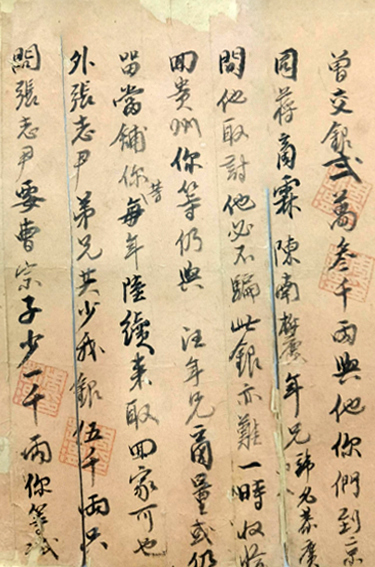 曾交銀弍萬叁千両與他你們到京
同蔣商霖陳南 年兄
問他取討他必不騙此銀亦難一時收
回貴州你等仍與汪年兄商量或仍
留當舖你等每年陸續來取回家可也
外張志尹弟兄共少我銀伍千両只
問張志尹要曹宗子少一千両你等